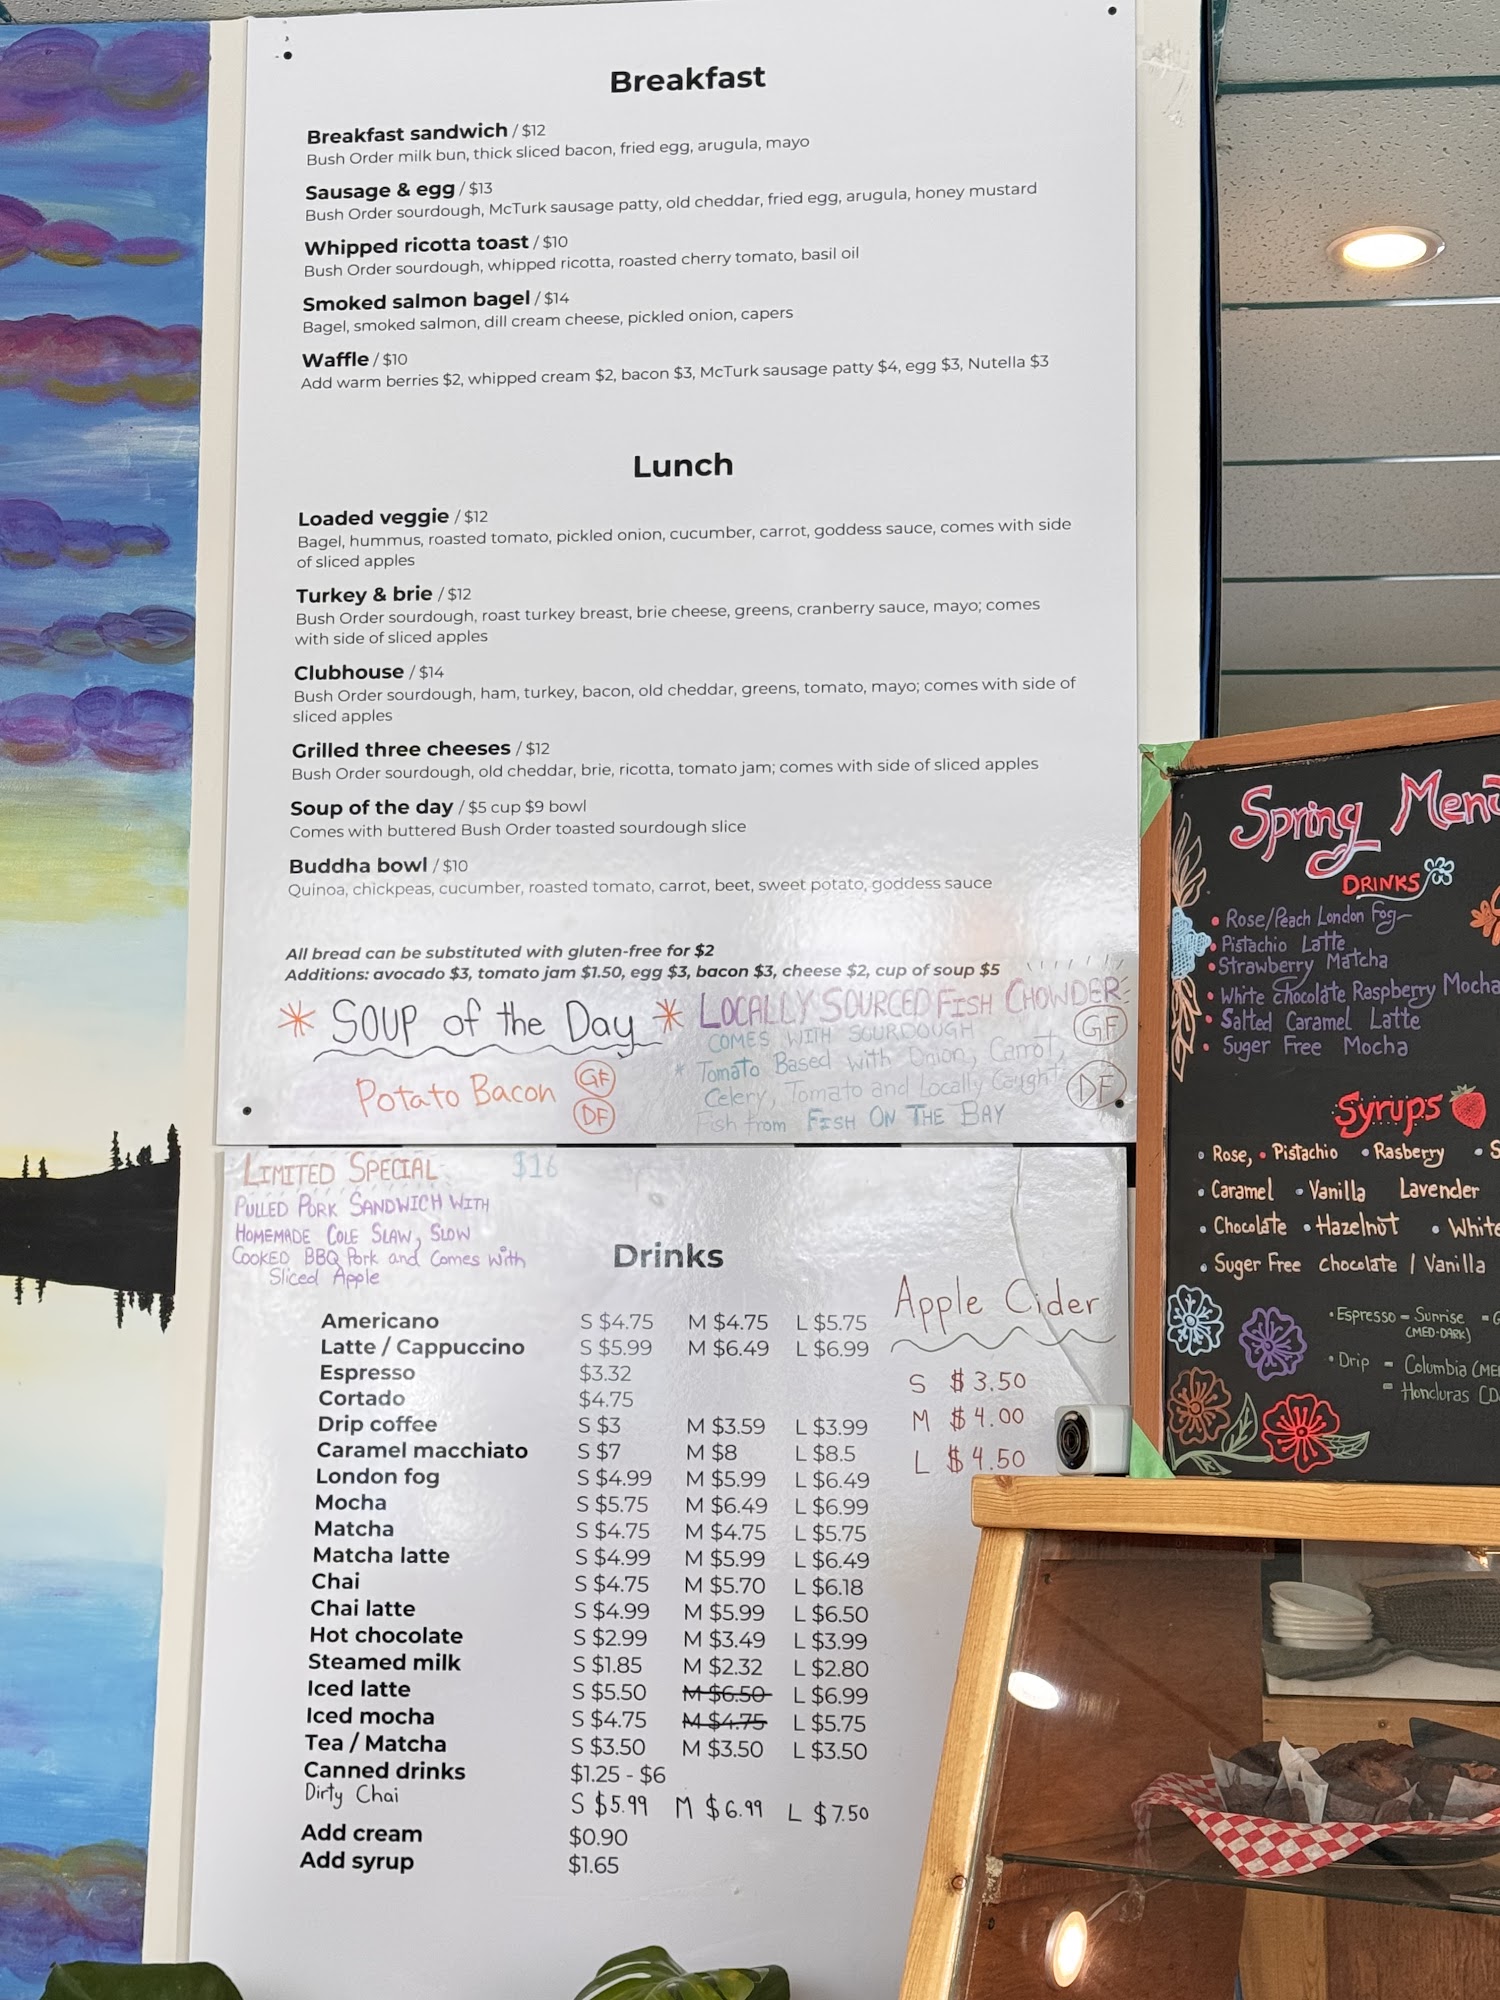 Breakfast
Breakfast sandwich / $12
Bush Order milk bun, thick sliced bacon, fried egg, arugula, mayo
Sausage & egg / $13
Bush Order sourdough, McTurk sausage patty, old cheddar, fried egg, arugula, honey mustard
Whipped ricotta toast / $10
Bush Order sourdough, whipped ricotta, roasted cherry tomato, basil oil
Smoked salmon bagel / $14
Bagel, smoked salmon, dill cream cheese, pickled onion, capers
Waffle / $10
Add warm berries $2, whipped cream $2, bacon $3, McTurk sausage patty $4, egg $3, Nutella $3
Lunch
Loaded veggie / $12
Bagel, hummus, roasted tomato, pickled onion, cucumber, carrot, goddess sauce, comes with side
of sliced apples
Turkey & brie / $12
Bush Order sourdough, roast turkey breast, brie cheese, greens, cranberry sauce, mayo; comes
with side of sliced apples
Clubhouse / $14
Bush Order sourdough, ham, turkey, bacon, old cheddar, greens, tomato, mayo; comes with side of
sliced apples
Grilled three cheeses / $12
Bush Order sourdough, old cheddar, brie, ricotta, tomato jam; comes with side of sliced apples
Soup of the day / $5 cup $9 bowl
Comes with buttered Bush Order toasted sourdough slice
Buddha bowl / $10
Quinoa, chickpeas, cucumber, roasted tomato, carrot, beet, sweet potato, goddess sauce
All bread can be substituted with gluten-free for $2
Additions: avocado $3, tomato jam $1.50, egg $3, bacon $3, cheese $2, cup of soup $5
* SOUP of the Day *
Potato Bacon GF DF
LOCALLY SOURCED FISH CHOWDER
COMES WITH SOURDOUGH GF
* Tomato Based with Onion, Carrot,
Celery, Tomato and Locally Caught DF
Fish from FISH ON THE BAY
LIMITED SPECIAL $16
PULLED PORK SANDWICH WITH
HOMEMADE COLE SLAW, SLOW
COOKED BBQ Pork and Comes with
Sliced Apple
Drinks
Americano S $4.75 M $4.75 L $5.75
Latte / Cappuccino S $5.99 M $6.49 L $6.99
Espresso $3.32
Cortado $4.75
Drip coffee S $3 M $3.59 L $3.99
Caramel macchiato S $7 M $8 L $8.5
London fog S $4.99 M $5.99 L $6.49
Mocha S $5.75 M $6.49 L $6.99
Matcha S $4.75 M $4.75 L $5.75
Matcha latte S $4.99 M $5.99 L $6.49
Chai S $4.75 M $5.70 L $6.18
Chai latte S $4.99 M $5.99 L $6.50
Hot chocolate S $2.99 M $3.49 L $3.99
Steamed milk S $1.85 M $2.32 L $2.80
Iced latte S $5.50 M $6.50 L $6.99
Iced mocha S $4.75 M $4.75 L $5.75
Tea / Matcha S $3.50 M $3.50 L $3.50
Canned drinks $1.25 - $6
Dirty Chai S $5.99 M $6.99 L $7.50
Add cream $0.90
Add syrup $1.65
Apple Cider
S $3.50
M $4.00
L $4.50
Spring Menu
DRINKS
• Rose/Peach London Fog
• Pistachio Latte
• Strawberry Matcha
• White Chocolate Raspberry Mocha
• Salted Caramel Latte
• Suger Free Mocha
Syrups
• Rose, • Pistachio • Rasberry • S
• Caramel • Vanilla Lavender
• Chocolate • Hazelnut • White
• Suger Free chocolate / Vanilla
• Espresso - Sunrise
(MED-DARK)
• Drip = Columbia (ME
= Honduras (D